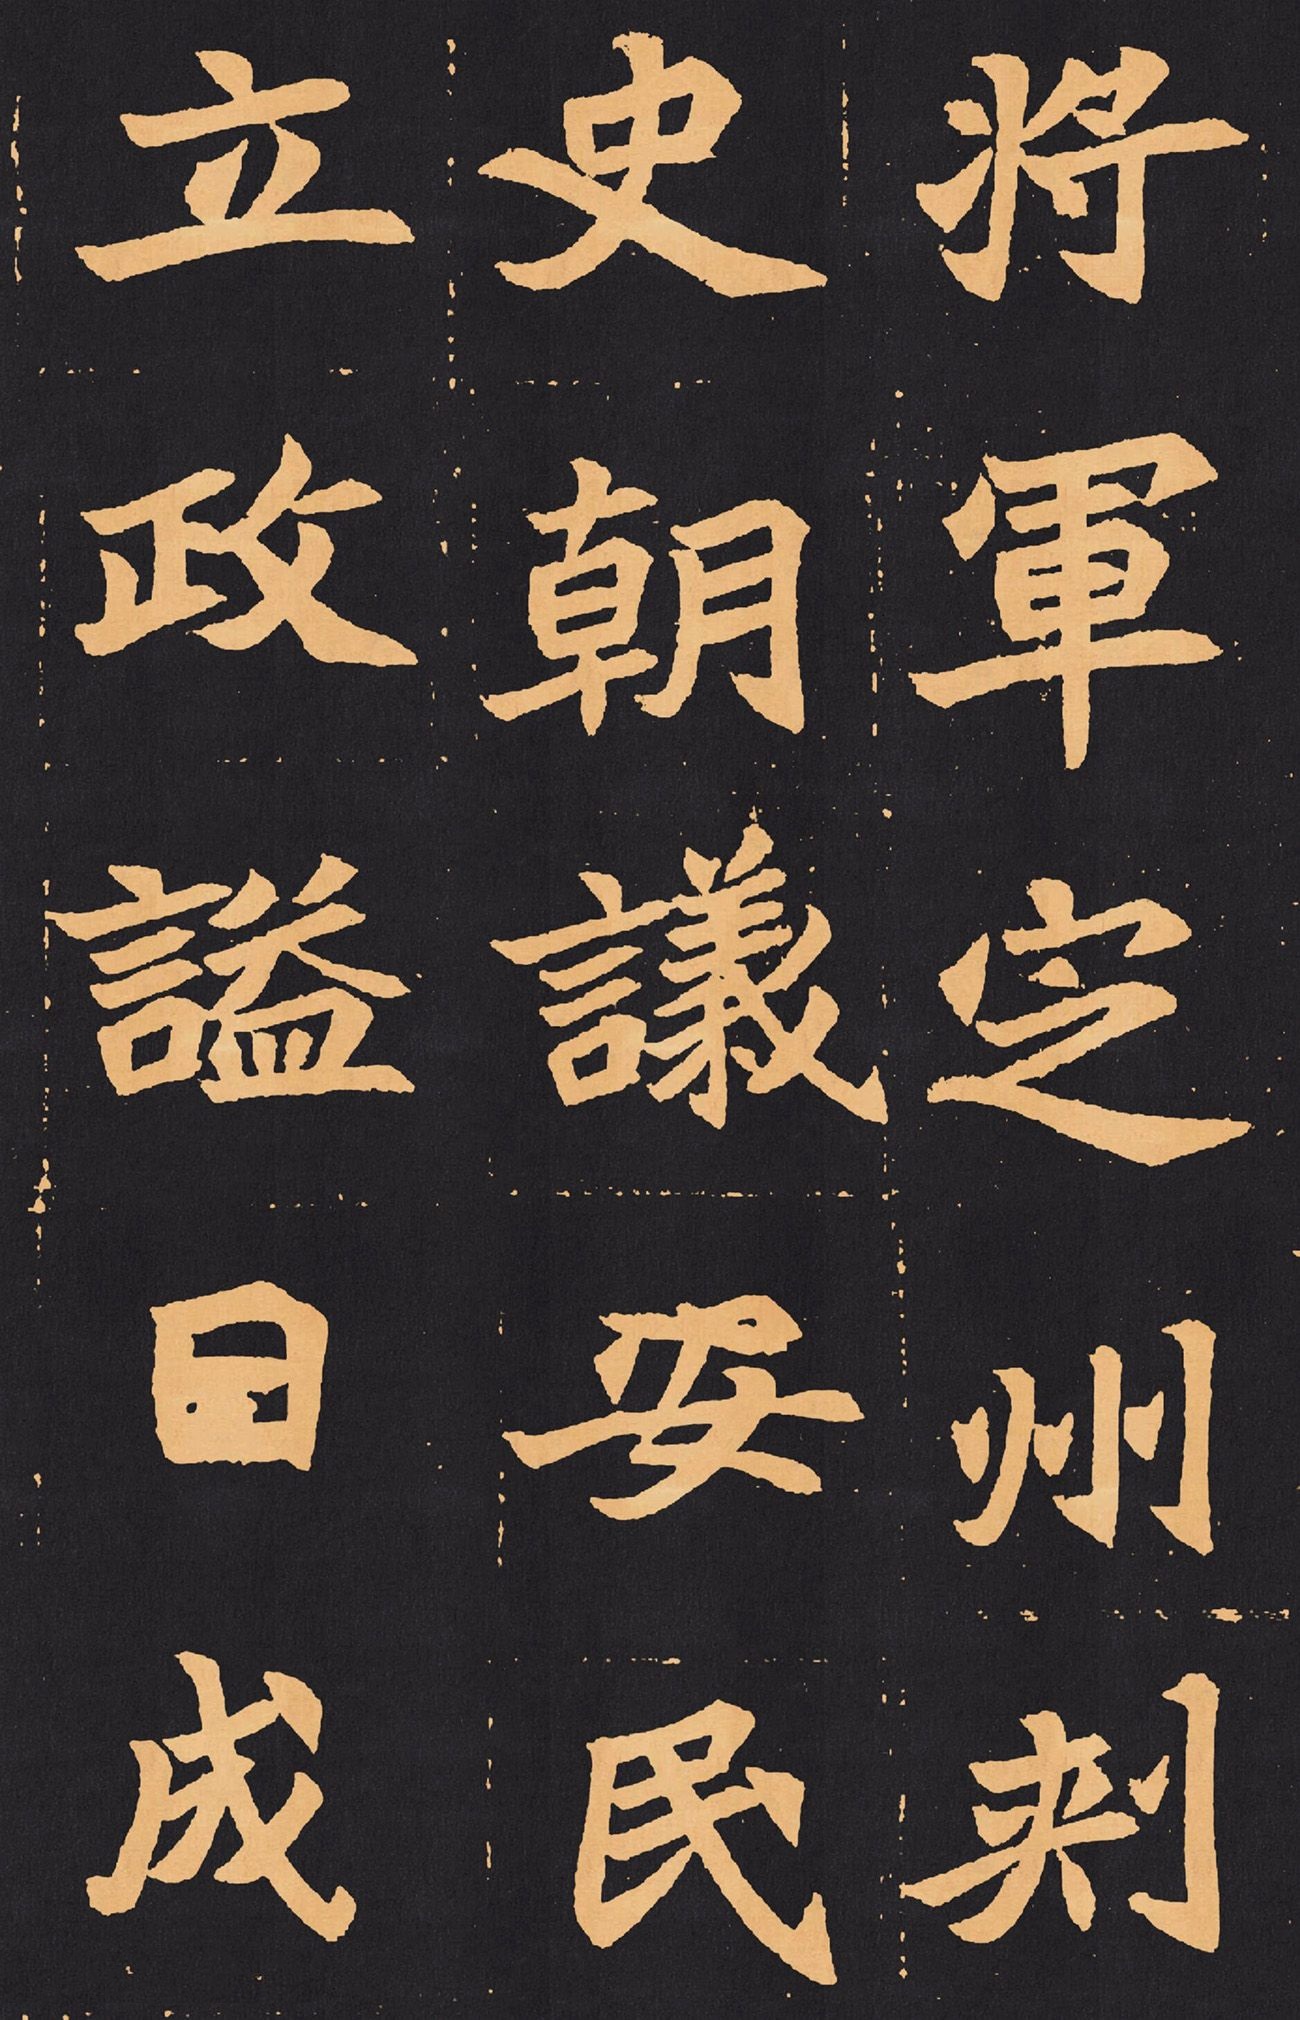 將軍定州刾
史朝議安民
立政謚曰成